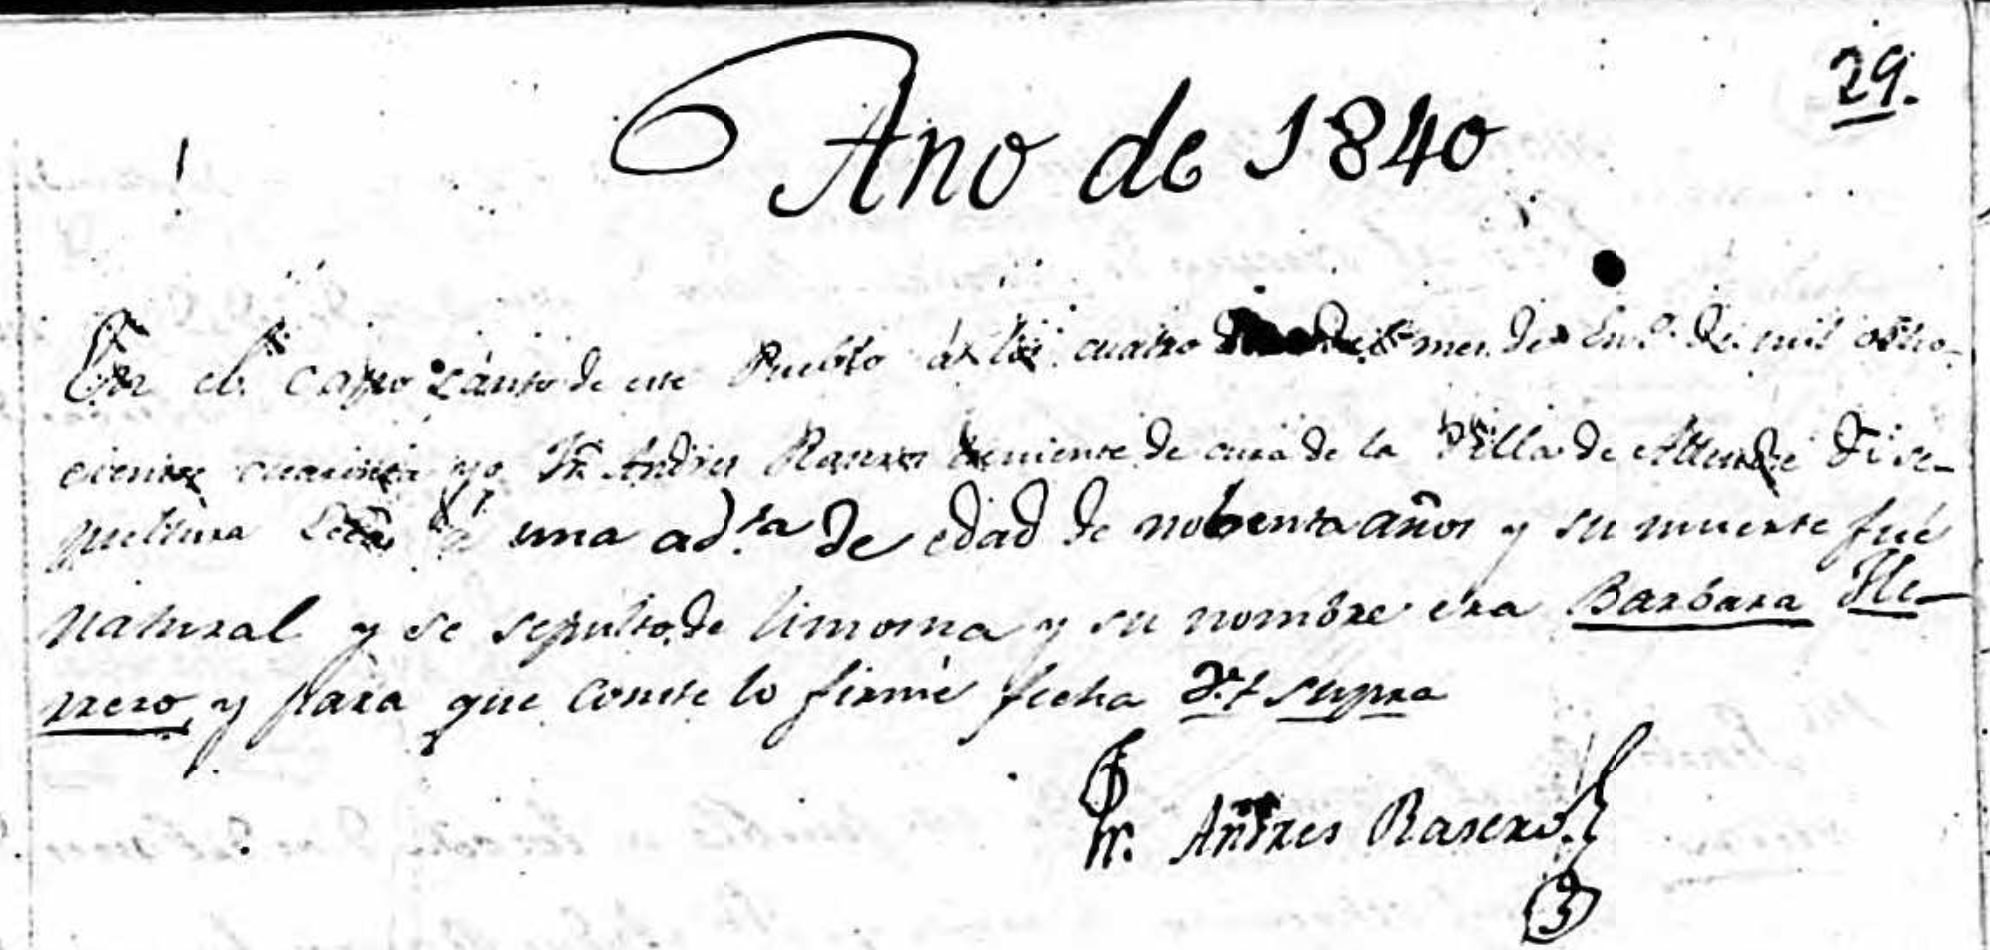 29.
Año de 1840
En el Campo Santo de este Pueblo á los cuatro del mes de En.o de mil ocho-
cientos cuarenta yo Fr. Andres Rasero teniente de cura de la Villa de Allende di se-
pultura á una ad.ta de edad de nobenta años y su muerte fué
natural y se sepultó de limosna y su nombre era Barbara He-
rrero, y para que conste lo firmé fecha Ut supra
Fr. Andres Rasero